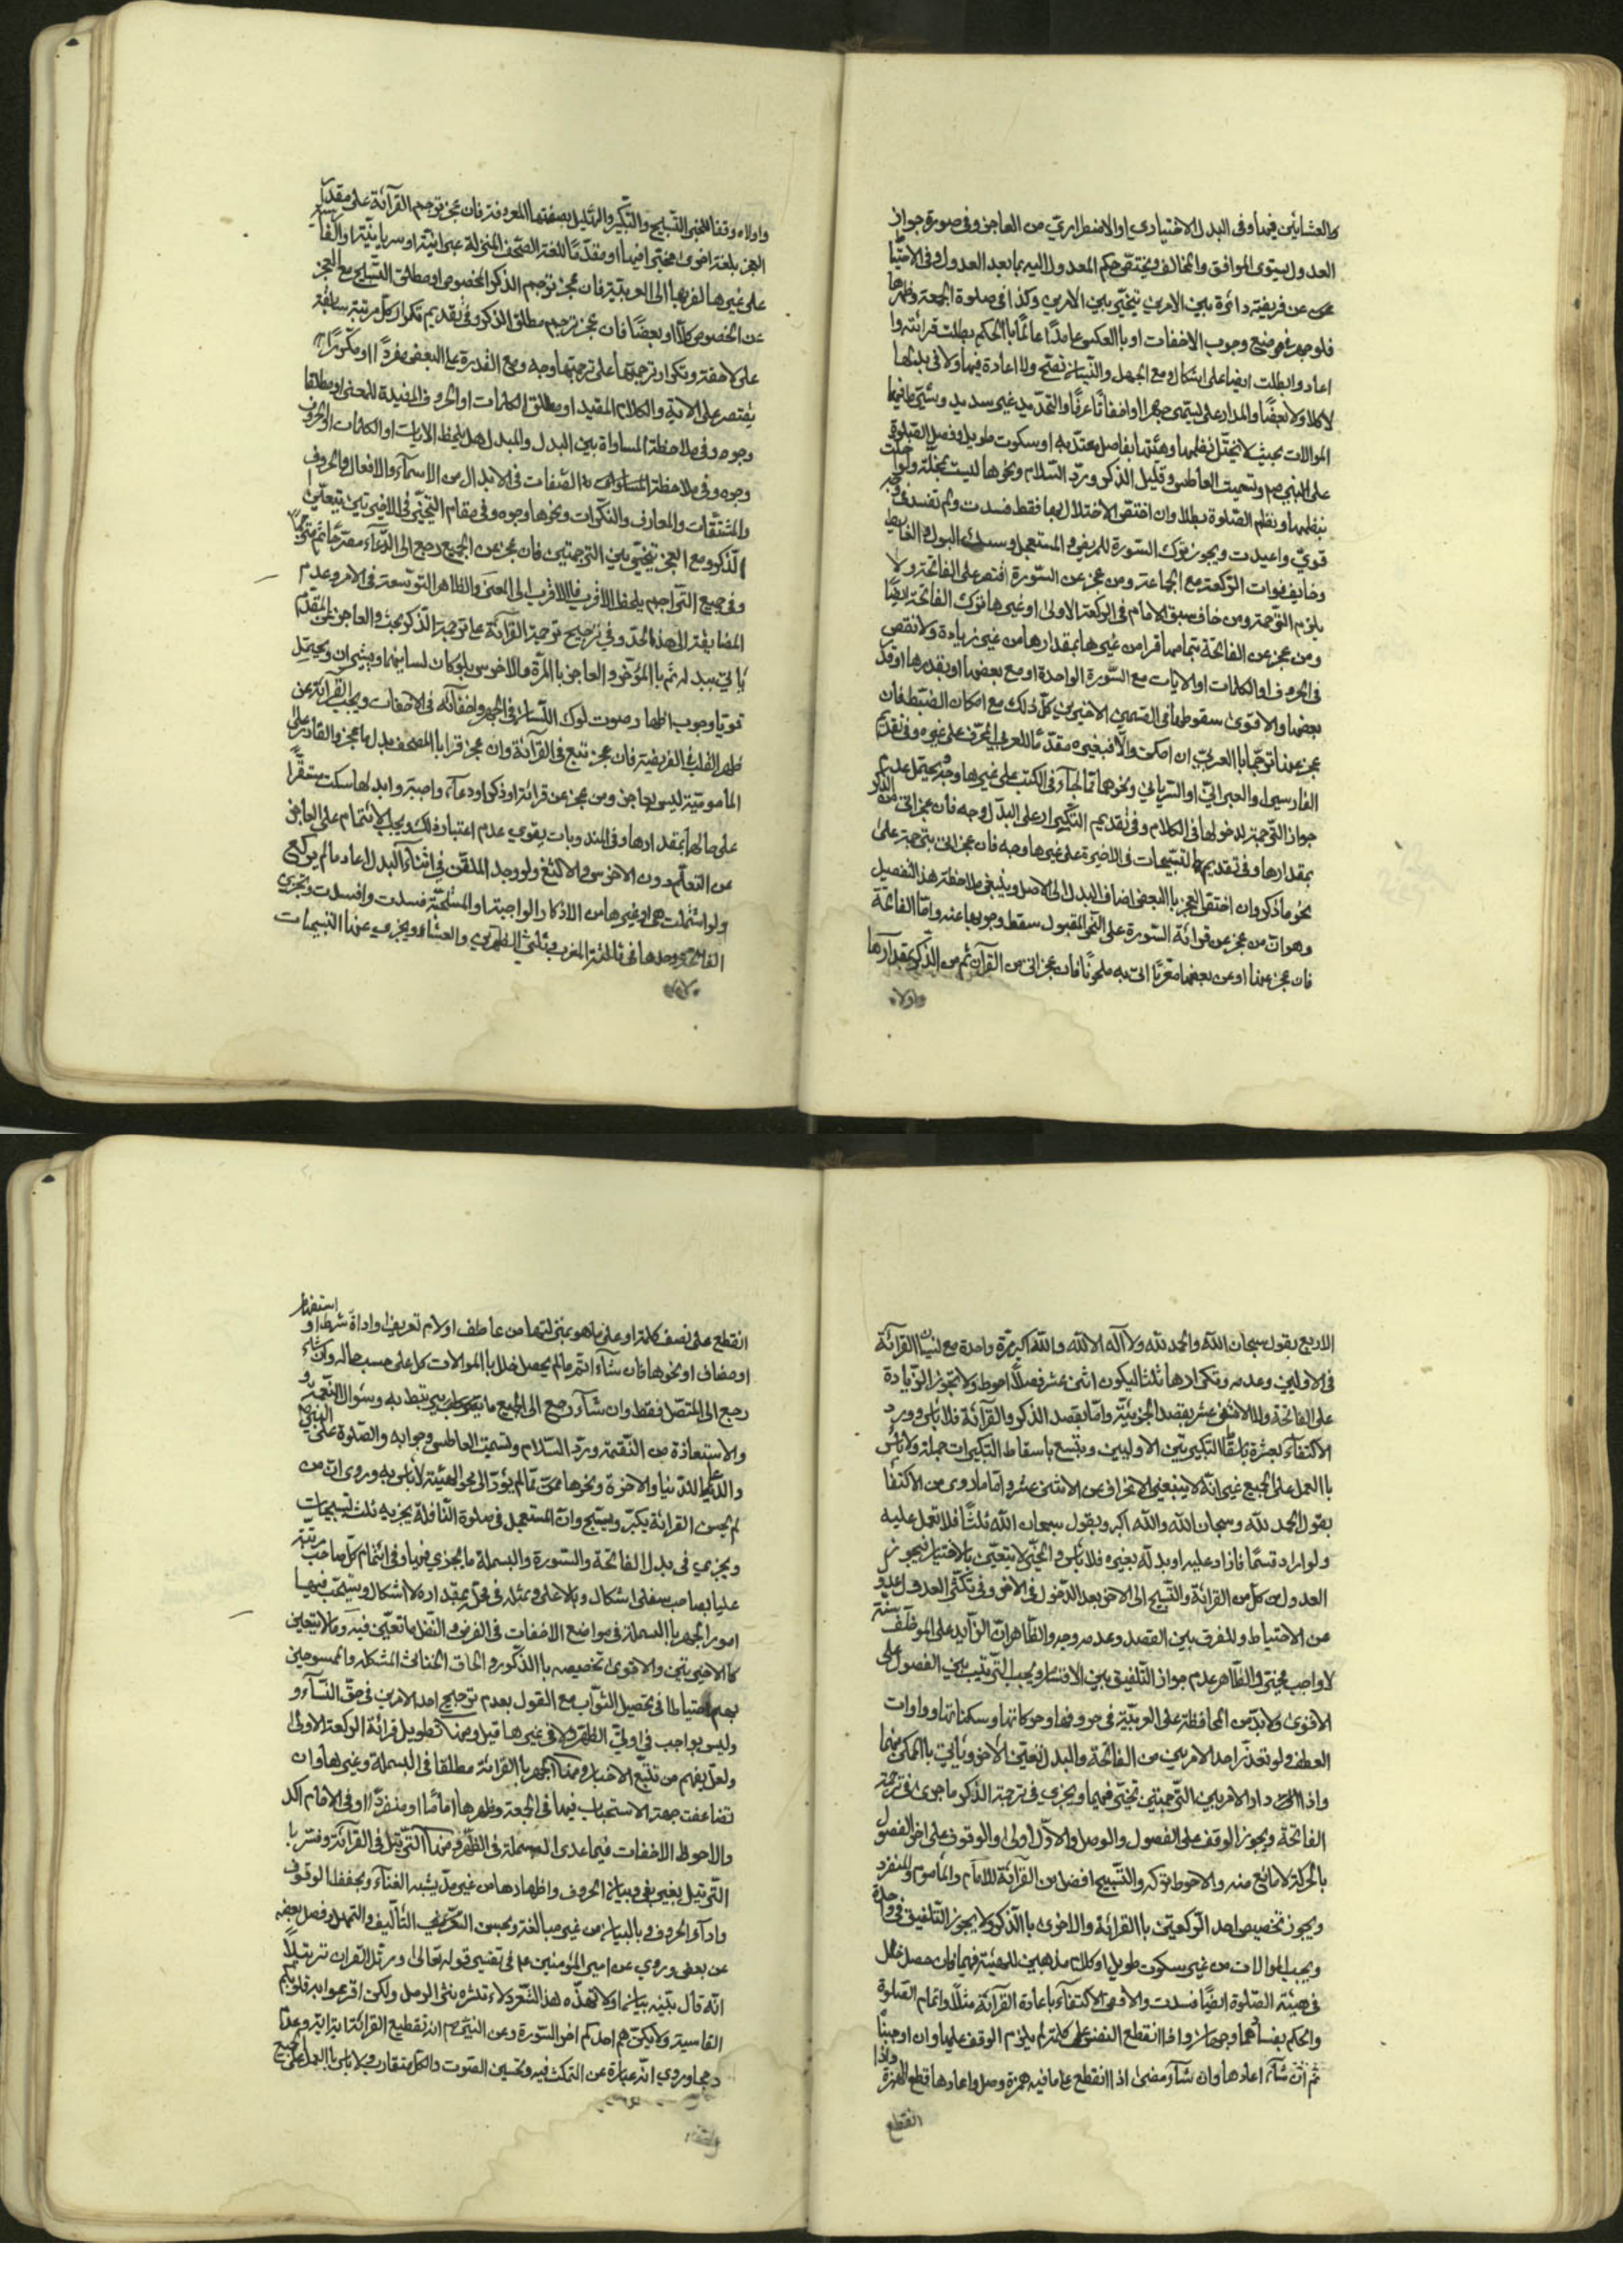 والعشائين فيهما وفى البدل الاختيارى او الاضطرارى من العاجز وفى صورة جواز
العدول يستوى الموافق والمخالف ويختص حكم المعدول اليه بما بعد العدول وفى الاحتيا
عن فريضة دائرة بين الامرين يتخير بين الامرين وكذا فى صلوة الجمعة وظهرها
فلو جهر فى موضع وجوب الاخفات او بالعكس عامدا عالما بالحكم بطلت قرائته وا
اعاد وابطلت ايضا على اشكال ومع الجهل والنسيان تصح ولا اعادة فيها ولا فى بدلها
لا كلا ولا بعضا والمدار على ما يسمى جهرا او اخفاتا عرفا والتحديد غير سديد
الموالات بحيث لا يختل نظمها وهيئتها بفاصل معتد به او سكوت طويل وفصل الصلوة
على النبى ص وتسميت العاطس وقليل الذكر ورد السلام ونحوها ليست بمخلة ولو اخلت
بنظمها ونظم الصلوة بطلا وان اختص الاختلال بها فقط فسدت ولم تفسد فى وجه
قوى واعيدت ويجوز ترك السورة للمريض والمستعجل
وخايف فوات الركعة مع الجماعة ومن عجز عن السورة اقتصر على الفاتحة ولا
يلزم الترجمة ومن خاف سبق الامام فى الركعة الاولى او غيرها ترك الفاتحة ايضا
ومن عجز عن الفاتحة بتمامها قرا من غيرها بمقدارها من غير زيادة ولا نقص
فى الحروف او الكلمات او الايات مع السورة الواحدة او مع بعضها او بقدرها او قدر
بعضها والاقوى سقوطها فى القسمين الاخيرين كل ذلك مع امكان الضبط فان
عجز عنها ترجمها بالعربى ان امكن والا فبغيره مقدما للعربى المحرف على غيره وفى تقديم
الفارسى او العبرانى او السريانى ونحوهما مما جاء فى الكتب على غيرها وجه يحتمل عدم
جواز الترجمة لدخولها فى الكلام وفى تقديم التكرار على البدل وجه فان عجز اتى من الذكر
بمقدارها وفى تقديم التسبيحات فى الاخيرة على غيرها وجه فان عجز اتى بترجمة على
نحو ما ذكر وان اختص العجز بالبعض اضاف البدل الى الاصل وينبغى ملاحظة هذا التفصيل
وهو ان من عجز عن قرائة السورة على النحو المقبول سقط وجوبها عنه واما الفاتحة
فان عجز عنها او عن بعضها معربا اتى به ملحونا فان عجز اتى من القرآن ثم من الذكر بمقدارها
واولاه
واولاه وفقا للمعنى التسبيح والتكبير والتهليل بصفتها المعروفة فان عجز ترجم القرآئة على مقدار
العجز بلغة اخرى مخيرا فيها او مقدما للغة الصحف المنزلة عبرانية او سريانية او الفا
على غيرها لقربها الى العربية فان عجز ترجم الذكر الخصوص او مطلق التسبيح مع العجز
عن الخصوص كلا او بعضا فان عجز ترجم مطلق الذكر وفى تقديم تكرار كل مرتبة سابقة
على لاحقة وتكرار ترجمتها على ترجمتها وجه ومع القدرة على البعض مفردا او مكررا
يقتصر على الاية والكلام المفيد او مطلق الكلمات او الحروف المفيدة للمعنى او مطلقا
وجوه وفى ملاحظة المساواة بين البدل والمبدل هل يلحظ الايات او الكلمات او الحروف
وجوه وفى ملاحظة المساواة الصفات فى الابدال من الاسمآء والافعال والحروف
والمشتقات والمعارف والنكرات ونحوها وجوه وفى مقام التخيير فى الاخيرتين يتعين
الذكر ومع العجز يتخير بين الترجمتين فان عجز عن الجميع رجع الى الدعآء
وفى جميع التراجم يلحظ الاقرب فالاقرب الى المعنى والظاهر التوسعة فى الامر وعدم
المضايقة الى هذا الحد وفى ترجيح ترجمة القرآئة على ترجمة الذكر بحث والعاجز عن المقدم
ياتى ببدله ثم بالمؤخر والعاجز بالمرة والاخرس يلوكان لسانيهما ويشيران ويحتمل
قويا وجوب اظهار صوت لوك اللسان فى الجهر واخفآئه فى الاخفات ويجب القرآئة عن
ظهر القلب فى الفريضة فان عجز تبع فى القرآئة وان عجز قرا بالمصحف بدل ما عجز والقادر على
المامومية ليس بعاجز ومن عجز عن قرائة او ذكر او دعآء واجبة وابدالها سكت مستقرا
على حاله بمقدارها وفى المندوبات يقوى عدم اعتبار ذلك ويجب الائتمام على العاجز
عن التعلم دون الاخرس والالثغ ولو وجد الملقن فى اثنآء البدل اعاد ما لم يركع
ولو اشتملت هى او غيرها من الاذكار الواجبة او المستحبة فسدت وافسدت ويجزى
الفاتحة وحدها فى ثالثة المغرب وثالثى الظهرين والعشاء ويجزى عنها التسبيحات
الاربع بقول سبحان الله والحمد لله ولا اله الا الله والله اكبر مرة واحدة مع نسيان القرآئة
فى الاوليين وعدمه وتكرارها ثلاثا ليكون اثنى عشر فصلا احوط ولا يجوز الزيادة
على الفاتحة ولا الاثنى عشر بقصد الجزئية واما بقصد الذكر والقرآئة فلا باس وورد
الاكتفآء بعشرة باسقاط التكبيرتين الاوليين وبتسع باسقاط التكبيرات جملة ولا باس
بالعمل على الجميع غير انه لا ينبغى الانحراف عن الاثنى عشر واما ما روى من الاكتفا
بقول الحمد لله وسبحان الله والله اكبر وبقول سبحان الله ثلثا فلا تعمل عليه
ولو اراد قسما فازاد عليه او بدله بغيره فلا باس والمخير لا يتعين بالاختيار فيجوز
العدول من كل من القرائة والتسبيح الى الاخر بعد الدخول فى الاخر وفى تكثر العدول
عن الاحتياط والفرق بين القصد وعدمه وجه والظاهر ان الزايد على الموظف سنة
لا واجب مخير والظاهر عدم جواز التلفيق بين الاقسام ويجب الترتيب بين الفصول على
الاقوى ولا بد من المحافظة على العربية فى حروفها وحركاتها وسكناتها وواوات
العطف ولو تعذر احد الامرين من الفاتحة والبدل تعين الاخر وياتى بالممكن منهما
واذا دار الامر بين الترجمتين تخير فيهما ويجزى فى ترجمة الذكر ما جرى فى ترجمة
الفاتحة ويجوز الوقف على الفصول والوصل والاول اولى والوقوف على اخر الفصول
بالحركة لا مانع منه والاحوط تركه والتسبيح افضل من القرآئة للامام والماموم والمنفرد
ويجوز تخصيص احد الركعتين بالقرائة والاخرى بالذكر ولا يجوز التلفيق فى واحدة
ويجب الموالات من غير سكوت طويل او كلام مذهبين للهيئة فيها فان حصل خلل
فى هيئة الصلوة ايضا فسدت والاقوى الاكتفآء باعادة القرآئة مثلا واتمام الصلوة
والحكم بفسادهما وجهان واذا انقطع النفس على كلمة لم يلزم الوقف عليها وان اوجبنا
ثم ان شآء اعادها وان شآء مضى اذا انقطع على ما فيه همزة وصل واعادها قطع الهمزة واذا
انقطع
انقطع على نصف كلمة او على ما هو بمنزلتها من عاطف او لام تعريف او اداة شرط او استفهام
او مضاف او نحوها فان شآء اتم ما لم يحصل خلل بالموالات كل على حسب حاله وان شاء
رجع الى المتصل فقط وان شآء رجع الى الجميع مما يرتبط به وسؤال الرحمة و
والاستعاذة من النقمة ورد السلام وتسميت العاطس وجوابه والصلوة على النبى ص
والدعآء للدنيا والاخرة ونحوها مما لم يؤد الى محو الهيئة لا باس به وروى ان من
لم يحسن القرائة يكبر ويسبح وان المستعجل فى صلوة النافلة يجزيه ثلث تسبيحات
ويجزى فى بدل الفاتحة والسورة والبسملة ما يجزى فيها وفى ائتمام كل صاحب مرتبة
عليا بصاحب سفلى اشكال وبالاعلى وبمثله فى محل بمقداره لا اشكال ويستحب فيها
امور الجهر بالبسملة فى مواضع الاخفات فى الفرض والنفل ما تعين فيه وما لا يتعين
كالاخيرتين والاقوى تخصيصه بالذكور والحاق الخناثى المشكلة والممسوحين
بهم احتياطا فى تحصيل الثواب مع القول بعدم ترجيح احد الامرين فى حق النسآء و
وليس بواجب فى اولتى الظهر ولا فى غيرها قيل ومنها تطويل قرائة الركعة الاولى
ولعله يفهم من تتبع الاخبار ومنها الجهر بالقرائة مطلقا فى البسملة وغيرها وان
تضاعفت جهة الاستحباب فيها فى الجمعة وظهرها اماما او منفردا وفى الامام اكد
والاحوط الاخفات فيما عدى البسملة فى الظهر ومنها الترتيل فى القرآئة وفسر با
الترتيل بغير بغى وبيان الحروف واظهارها من غير مد يشبه الغنآء وبحفظ الوقوف
وادآء الحروف وبالبيان من غير مبالغة وبحسن التاليف والتمهل وفصل بعضه
عن بعض وروى عن امير المؤمنين ع فى تفسير قوله تعالى ورتل القرآن ترتيلا
انه قال بينه بيانا ولا تهذه هذ الشعر ولا تنثره نثر الرمل ولكن اقرعوا به قلوبكم
القاسية ولا يكن هم احدكم اخر السورة وعن النبى ص انه تقطيع القرائة اية اية وعدم
وروى انه عبارة عن التمكث فيه وتحسين الصوت والكل متقارب ولا باس بالعمل على الجميع